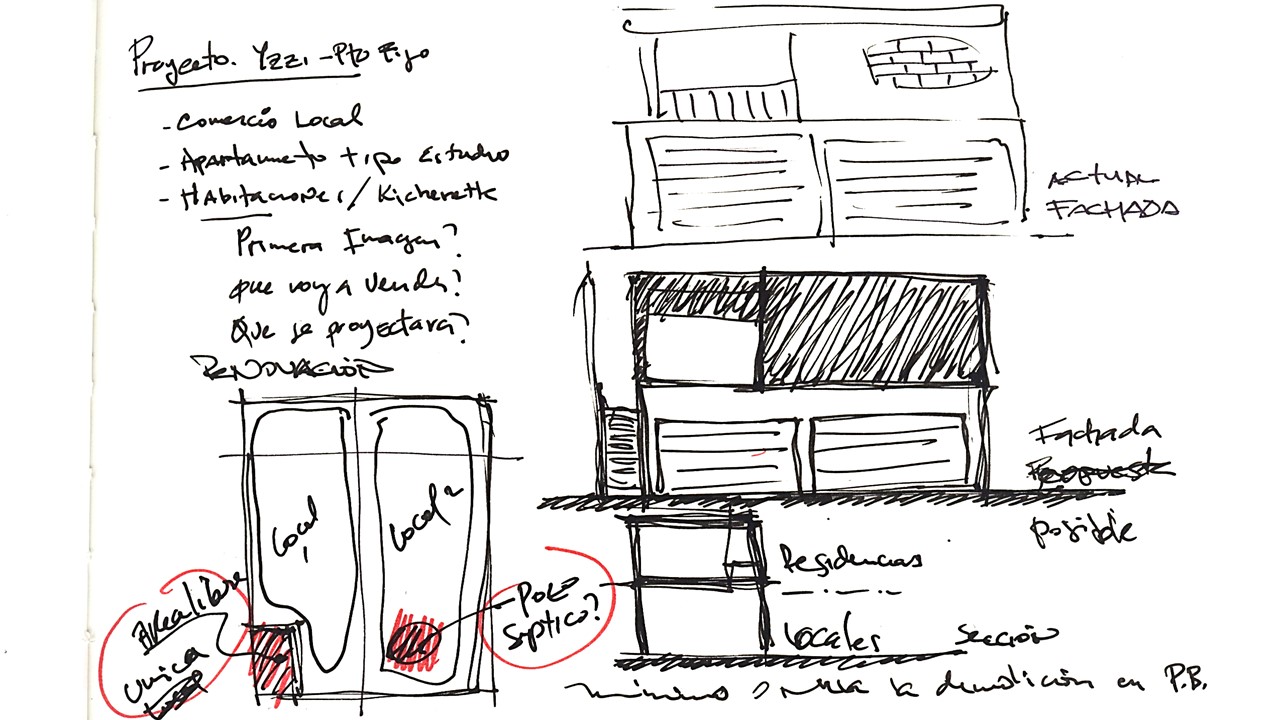 Proyecto. Yzzi - Pto
- Comercio Local
- Apartamento tipo Estudio
- Habitaciones / Kichenette
Primera Imagen?
que voy a vender?
Que se proyectara?
RENOVACION
ACTUAL
FACHADA
Fachada
posible
Local
1
Local 2
Area libre
unica
Pozo
Septico?
Residencias
Locales
Sección
minimo la demolición en P.B.